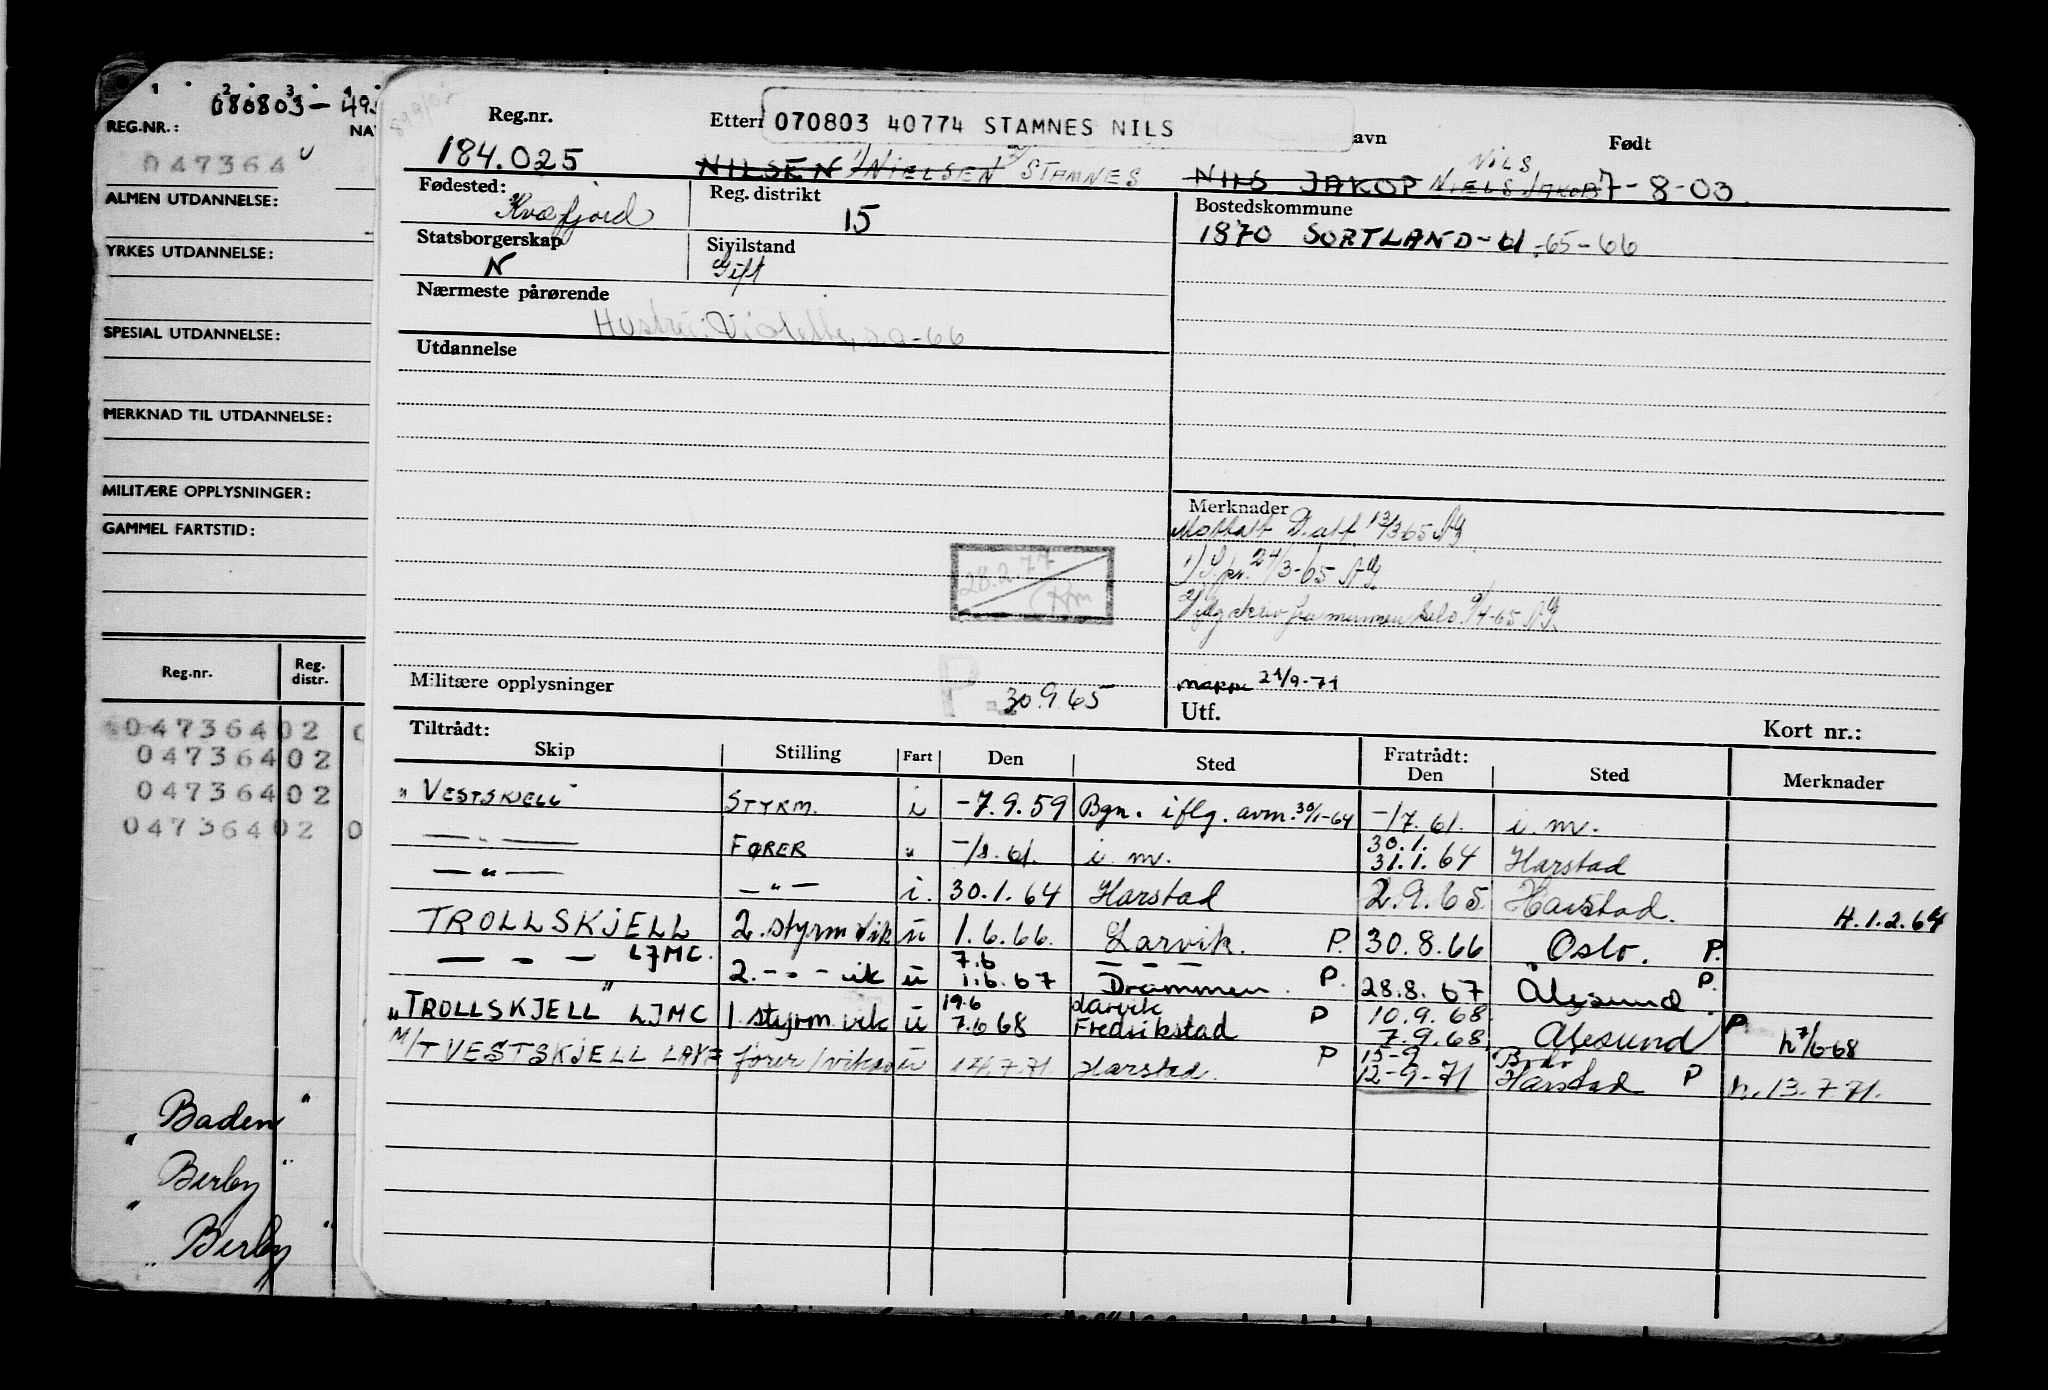 080803-49
REG.NR.:
047364
ALMEN UTDANNELSE:
YRKES UTDANNELSE:
SPESIAL UTDANNELSE:
MERKNAD TIL UTDANNELSE:
MILITÆRE OPPLYSNINGER:
GAMMEL FARTSTID:
Reg.nr. Reg. distr.
04736402
04736402
04736402
04736402
"Baden"
"Birby"
"Birby"
Reg.nr. 070803 40774 STAMNES NILS avn Født
184.025 NILSEN 1) NIELSEN 2) STAMNES NILS JAKOP NIELS JAKOB NILS 7-8-03
Fødested: Kvæfjord Reg. distrikt 15 Bostedskommune
1870 SORTLAND-U-65-66
Statsborgerskap N Siyilstand Gift
Nærmeste pårørende
Hustru: Violette, s.a-66
Utdannelse
Merknader
Mottatt D. att. 13/3 65
1) 24/3-65
2) 9/4-65
28.2.77
Militære opplysninger P. 30.9.65
mappe 21/9-71
Utf. Kort nr.:
Tiltrådt: Fratrådt:
Skip Stilling Fart Den Sted Den Sted Merknader
"VESTSKJELL" STYRM. i -7.9.59 Bgn. iflg. avm. 30/1-64 -/7.61. i. m.
— " — FØRER " -/8.61. i. m. 30.1. 31.1.64 Harstad
— " — — " — i. 30.1.64 Harstad 2.9.65 Harstad. H.1.2.64
TROLLSKJELL 2. styrm vik u 1.6.66. Larvik. P. 30.8.66 Oslo. P.
— " — LJMC. 2. — " — vik u 7.6 1.6.67 Drammen. P. 28.8.67 Ålesund P.
"TROLLSKJELL" LJMC 1 styrm vik u 19.6 7.6 68 Larvik Fredrikstad P 10.9.68. 7.9.68. Ålesund P h 7/6-68
M/T VESTSKJELL fører/ u 14.7.71. Harstad. P 15-9 12-9-71 Bodø Harstad P h. 13.7.71.